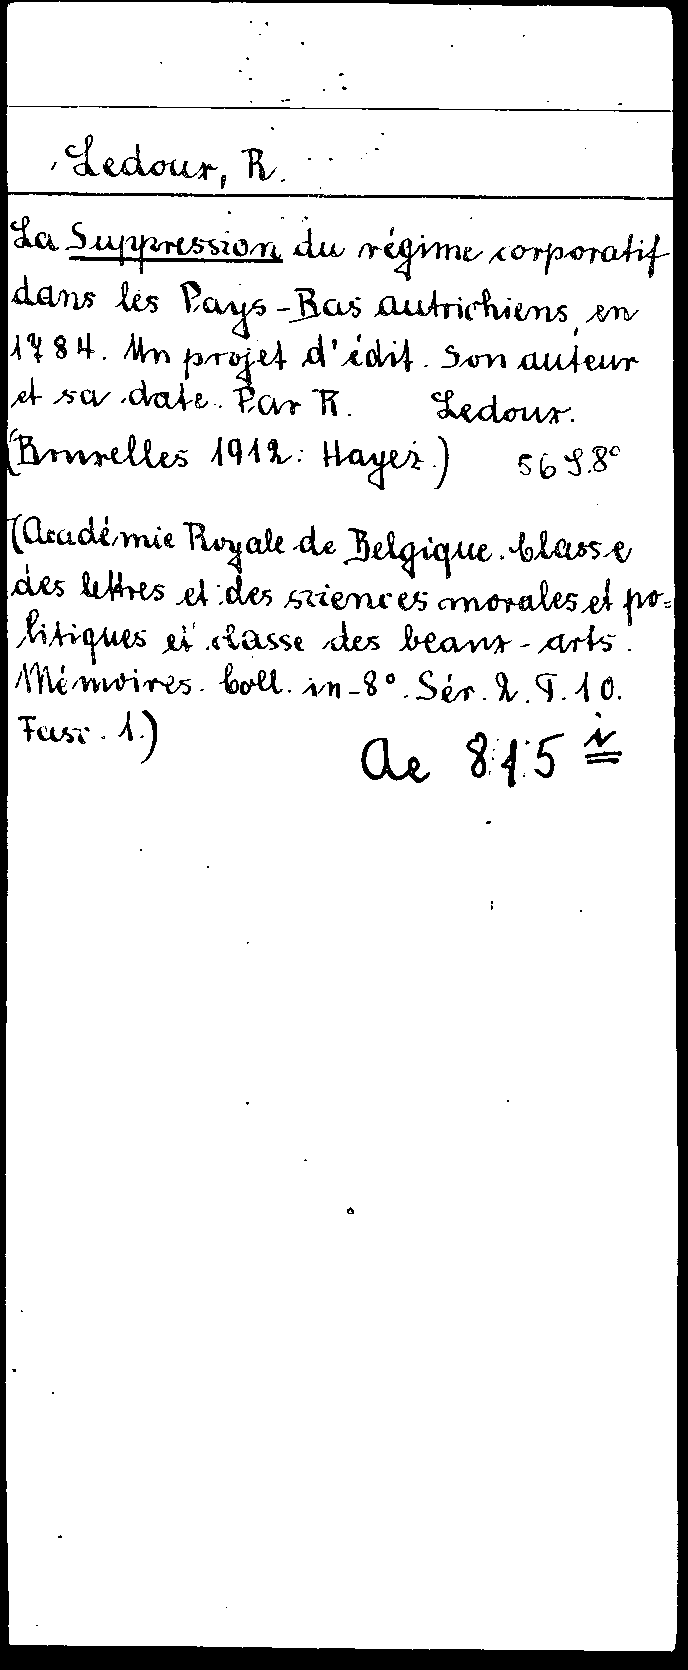 Ledoux, R.
La Suppression du régime corporatif
dans les Pays-Bas autrichiens en
1784. Un projet d'édit. Son auteur
et sa date. Par R. Ledoux.
(Bruxelles 1912: Hayez.) 56 S. 8°
(Académie Royale de Belgique. Classe
des lettres et des sciences morales et po=
litiques et classe des beaux-arts.
Mémoires. Coll. in-8°. Sér. 2. T. 10.
Fasc. 1.)
Ae 815